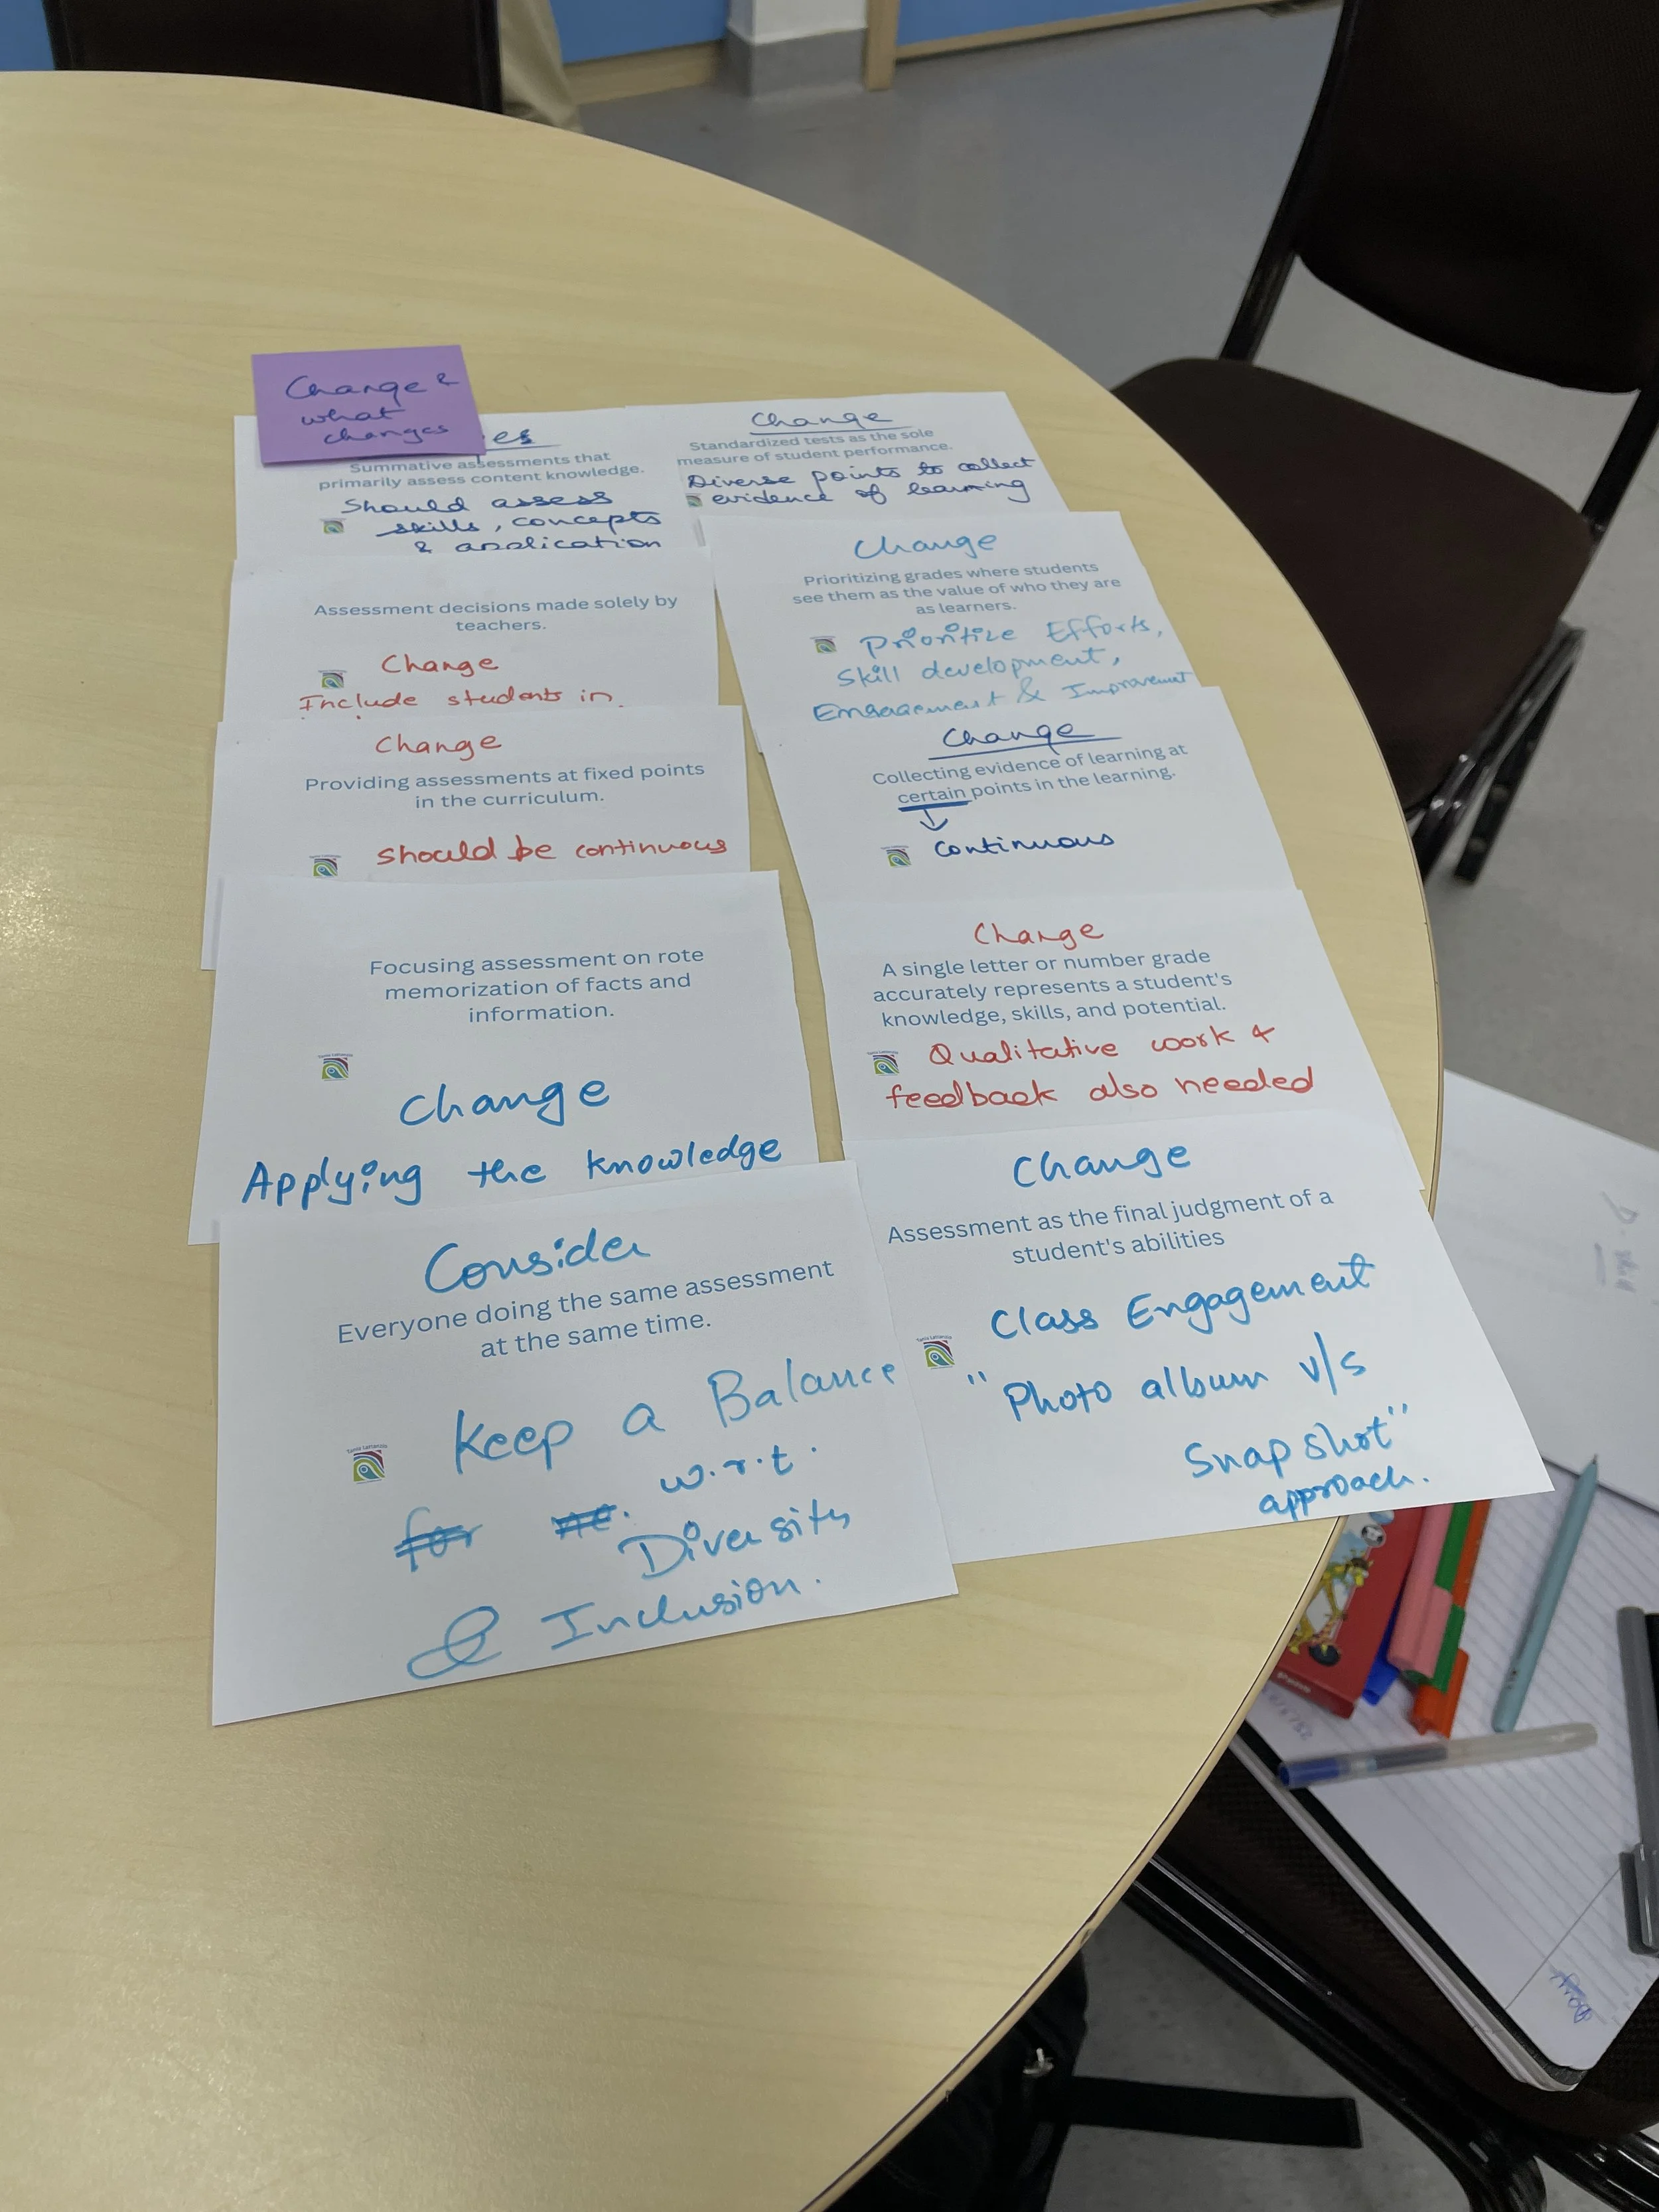 Change &
what
changes
es
Summative assessments that
primarily assess content knowledge.
Should assess
skills, concepts
& application
Change
Standardized tests as the sole
measure of student performance.
Diverse points to collect
evidence of learning
Assessment decisions made solely by
teachers.
Change
Include students in
Change
Prioritizing grades where students
see them as the value of who they are
as learners.
Prioritize Efforts,
Skill development,
Engagement & Improvement
Change
Providing assessments at fixed points
in the curriculum.
should be continuous
Change
Collecting evidence of learning at
certain points in the learning.
continuous
Focusing assessment on rote
memorization of facts and
information.
Change
Applying the knowledge
Change
A single letter or number grade
accurately represents a student's
knowledge, skills, and potential.
Qualitative work &
feedback also needed
Consider
Everyone doing the same assessment
at the same time.
Keep a Balance
w.r.t.
for
Diversity
& Inclusion.
Change
Assessment as the final judgment of a
student's abilities
Class Engagement
"Photo album v/s
Snapshot"
approach.